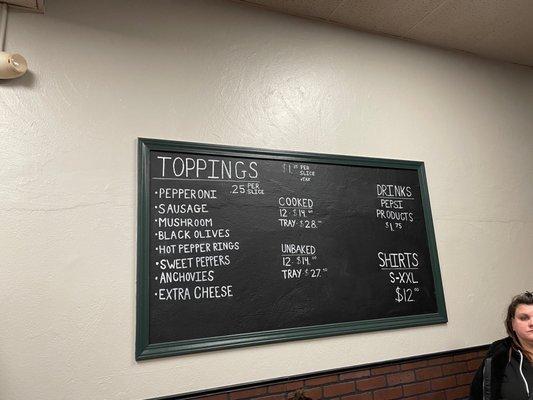 TOPPINGS
.25 PER SLICE
• PEPPERONI
• SAUSAGE
• MUSHROOM
• BLACK OLIVES
• HOT PEPPER RINGS
• SWEET PEPPERS
• ANCHOVIES
• EXTRA CHEESE
PER
SLICE
+TAX
COOKED
12 - $14.
TRAY - $28.
UNBAKED
12 - $14.00
TRAY - $27.
DRINKS
PEPSI
PRODUCTS
$1.75
SHIRTS
S-XXL
$12.00